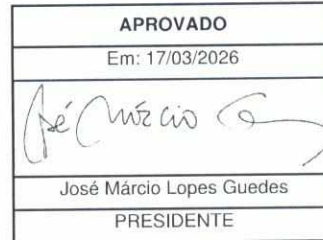 APROVADO
Em: 17/03/2026
José Márcio Lopes Guedes
PRESIDENTE